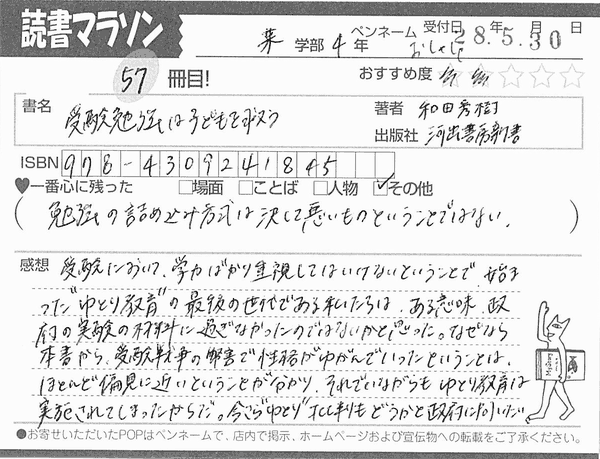 読書マラソン
薬 学部 4 年 ペンネーム おしゃじ 受付日 28年 5月 30日
57 冊目! おすすめ度 ☆☆☆☆☆
書名 受験勉強は子どもを救う
著者 和田秀樹
出版社 河出書房新書
ISBN 978-4309241845
♥一番心に残った □場面 □ことば □人物 ☑その他
(勉強の詰め込み方式は決して悪いものということではない。)
感想 受験において、学力ばかり重視してはいけないということで、始ま
った"ゆとり教育"の最後の世代である私たちは、ある意味、政
府の実験の材料に過ぎなかったのではないかと思った。なぜなら
本書から、受験戦争の弊害で性格がゆがんでいったということは、
ほとんど偏見に近いということが分かり、それでいながらも ゆとり教育は
実施されてしまったからだ。今さら"ゆとり"批判もどうかと政府に問いたい
●お寄せいただいたPOPはペンネームで、店内で掲示、ホームページおよび宣伝物への転載をご了承ください。